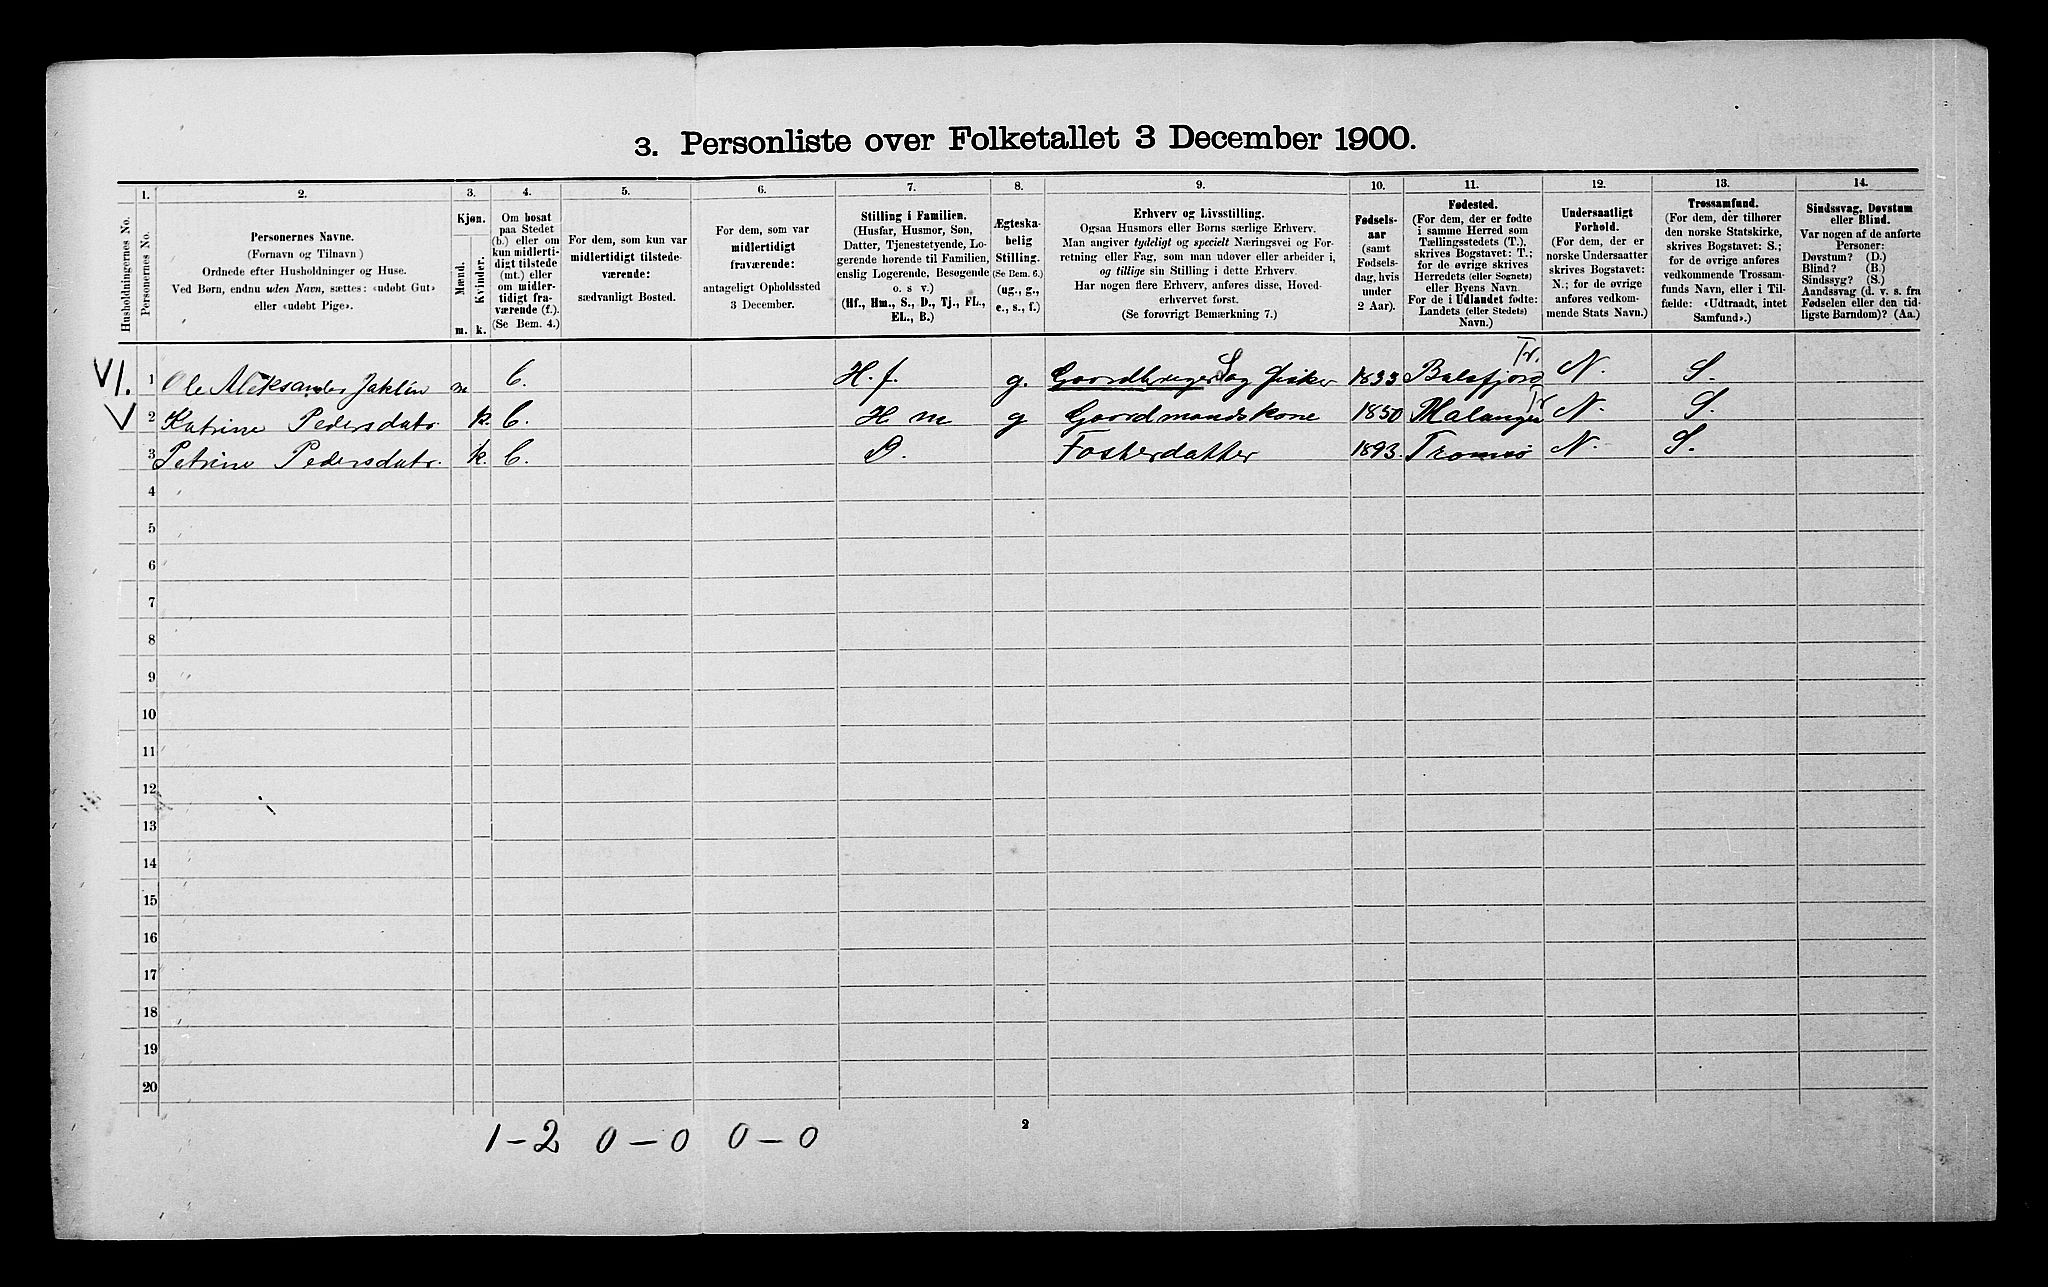 3. Personliste over Folketallet 3 December 1900.
1. 2. 3. 4. 5. 6. 7. 8. 9. 10. 11. 12. 13. 14.
Husholdningernes No.
Personernes No.
Personernes Navne.
(Fornavn og Tilnavn)
Ordnede efter Husholdninger og Huse.
Ved Børn, endnu uden Navn, sættes: «udøbt Gut»
eller «udøbt Pige».
Kjøn.
Mænd.
Kvinder.
m. k.
Om bosat
paa Stedet
(b.) eller om
kun midlerti-
digt tilstede
(mt.) eller
om midler-
tidigt fra-
værende (f.).
(Se Bem. 4.)
For dem, som kun var
midlertidigt tilstede-
værende:
sædvanligt Bosted.
For dem, som var
midlertidigt
fraværende:
antageligt Opholdssted
3 December.
Stilling i Familien.
(Husfar, Husmor, Søn,
Datter, Tjenestetyende, Lo-
gerende hørende til Familien,
enslig Logerende, Besøgende
o. s v.)
(Hf., Hm., S., D., Tj., FL.,
EL., B.)
Ægteska-
belig
Stilling.
(Se Bem. 6.)
(ug., g.,
e., s., f.)
Erhverv og Livsstilling.
Ogsaa Husmors eller Børns særlige Erhverv.
Man angiver tydeligt og specielt Næringsvei og For-
retning eller Fag, som man udøver eller arbeider i,
og tillige sin Stilling i dette Erhverv.
Har nogen flere Erhverv, anføres disse, Hoved-
erhvervet først.
(Se forøvrigt Bemærkning 7.)
Fødsels-
aar
(samt
Fødsels-
dag, hvis
under
2 Aar).
Fødested.
(For dem, der er fødte
i samme Herred som
Tællingsstedets (T.),
skrives Bogstavet: T.;
for de øvrige skrives
Herredets (eller Sognets)
eller Byens Navn.
For de i Udlandet fødte:
Landets (eller Stedets)
Navn.)
Undersaatligt
Forhold.
(For dem, der er
norske Undersaatter
skrives Bogstavet:
N.; for de øvrige
anføres vedkom-
mende Stats Navn.)
Trossamfund.
(For dem, der tilhører
den norske Statskirke,
skrives Bogstavet: S.;
for de øvrige anføres
vedkommende Trossam-
funds Navn, eller i Til-
fælde: «Udtraadt, intet
Samfund».)
Sindssvag, Døvstum
eller Blind.
Var nogen af de anførte
Personer:
Døvstum? (D.)
Blind? (B.)
Sindssyg? (S.)
Aandssvag (d. v. s. fra
Fødselen eller den tid-
ligste Barndom)? (Aa.)
1 Ole Aleksander Jaklin m b. H. f. g. Gaardbruger S og fisker 1833 Balsfjord Tr. N. S.
2 Katrine Pedersdatr. k. b. H m g Gaardmandskone 1850 Malangen Tr N. S.
3 Petrine Pedersdatr. k. b. D. Fosterdatter 1893. Tromsø N. S.
4
5
6
7
8
9
10
11
12
13
14
15
16
17
18
19
20
1 - 2 0 - 0 0 - 0
2